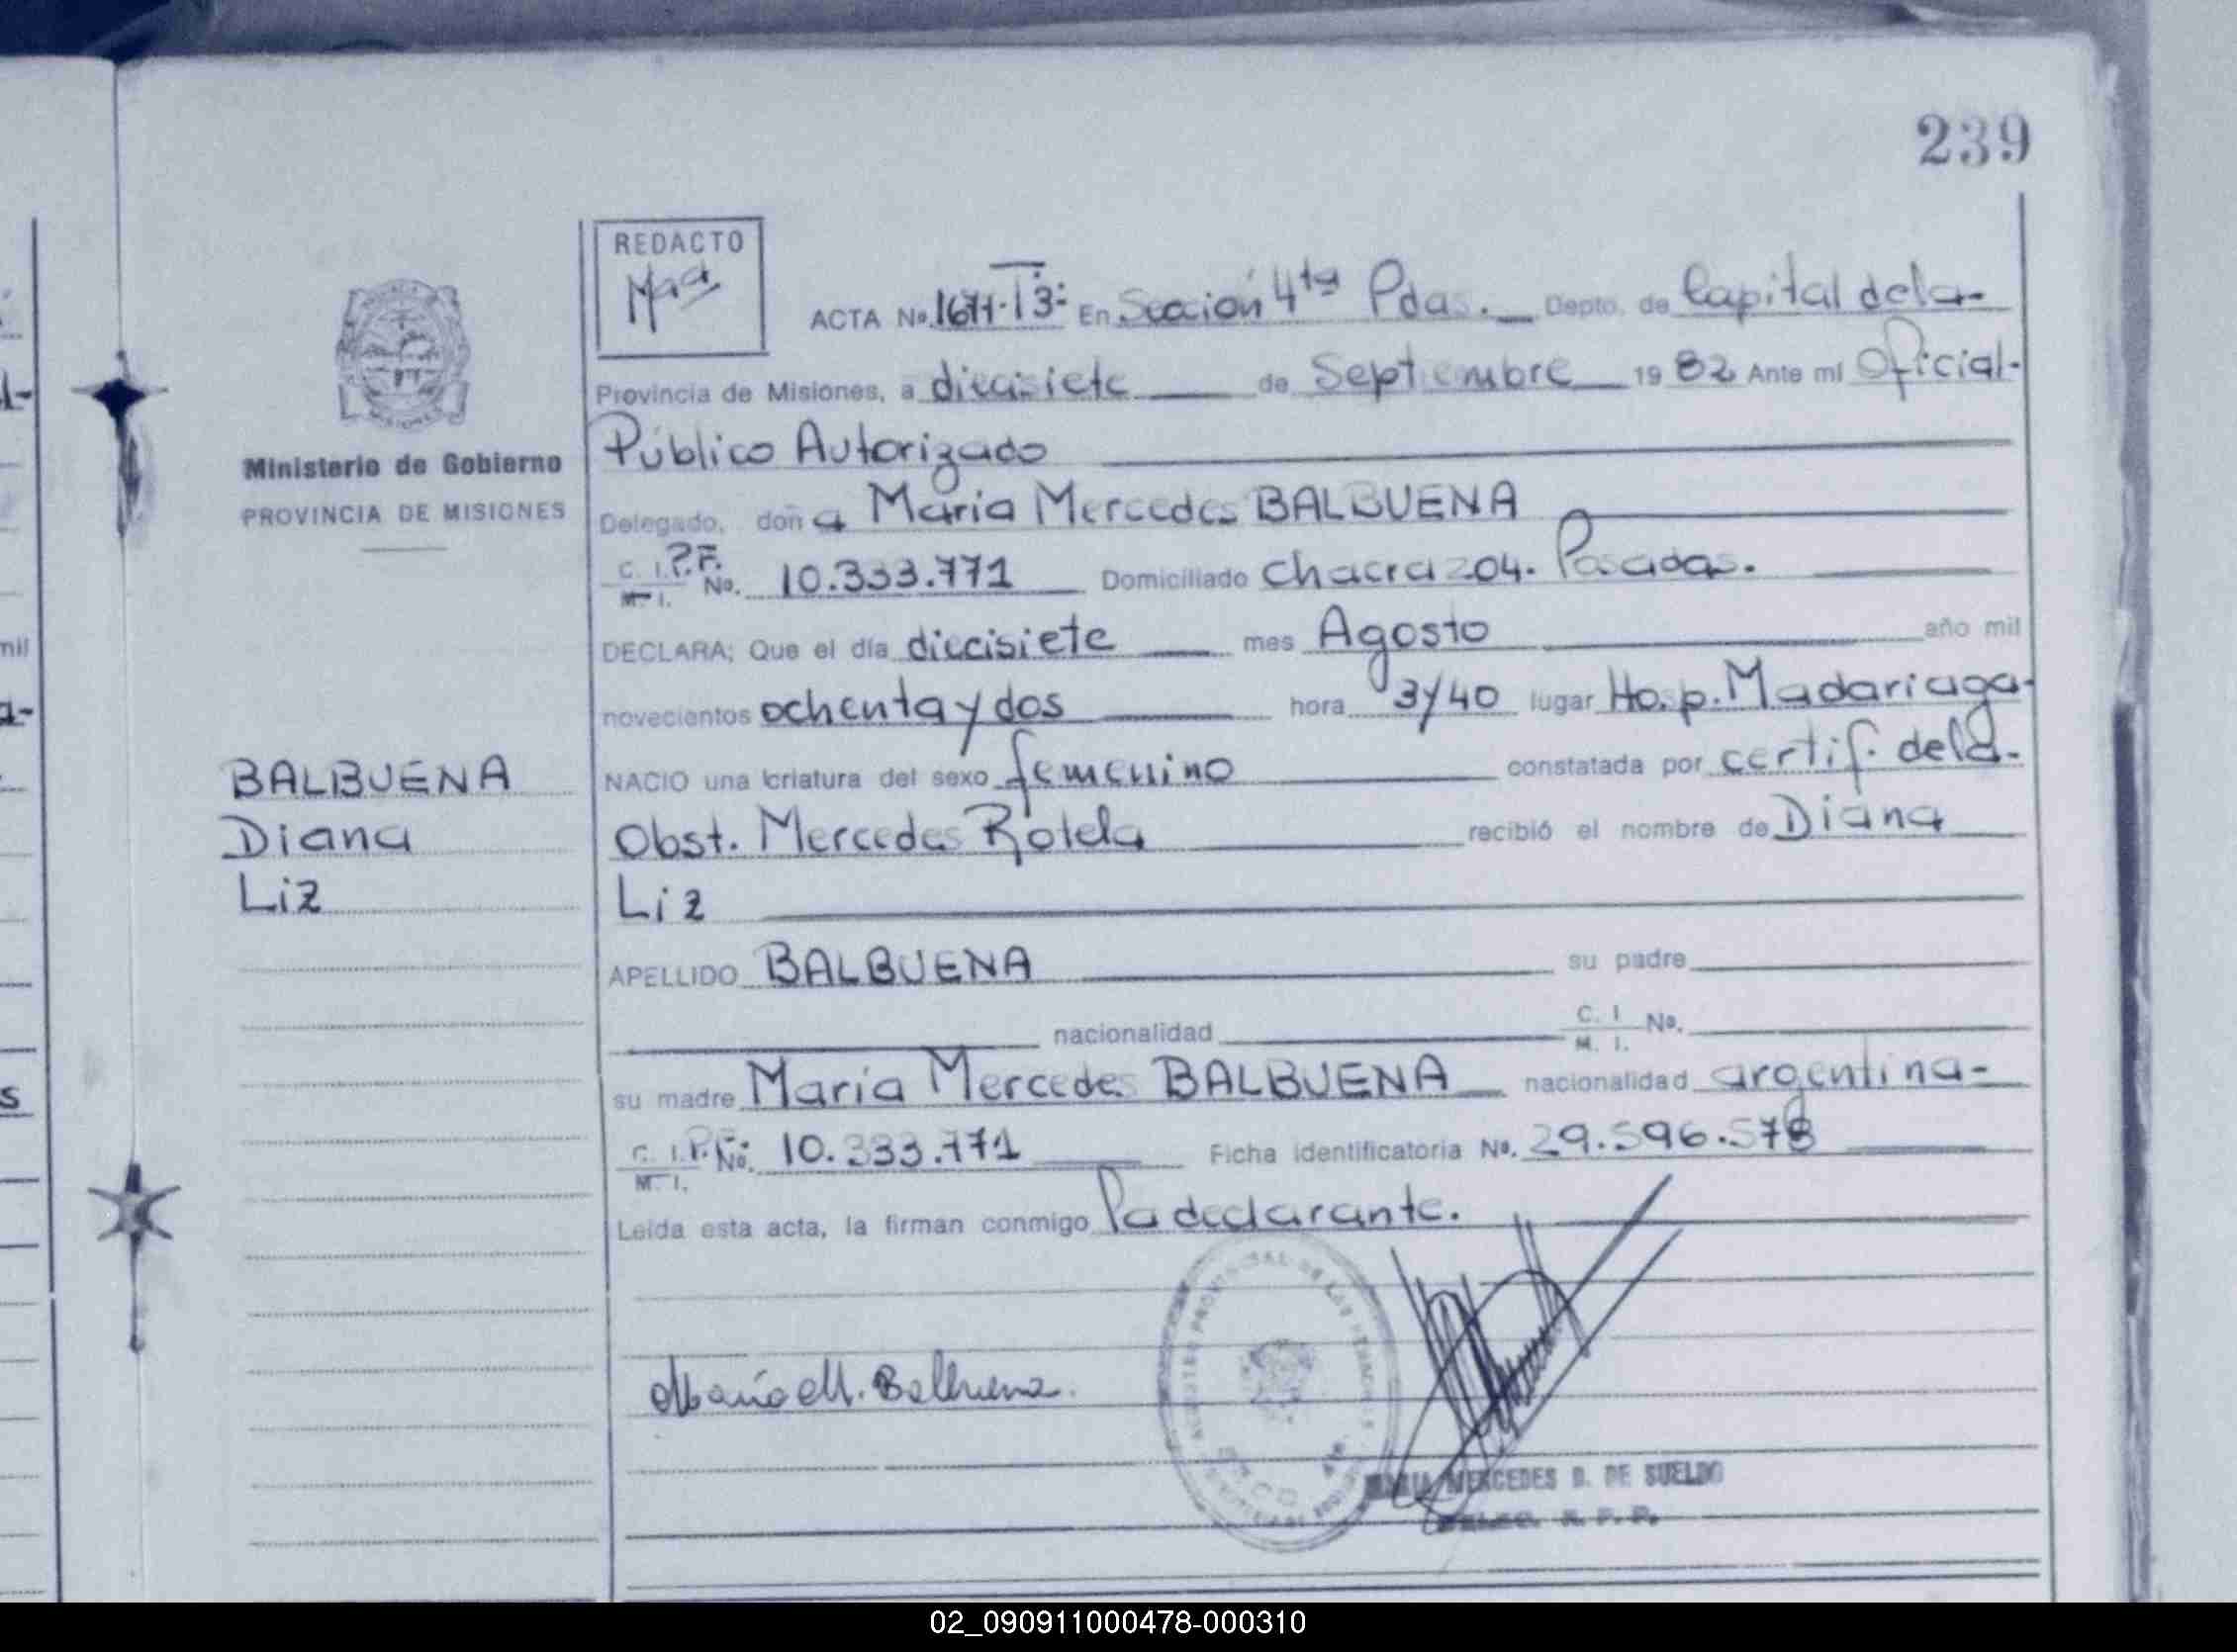 239
REDACTO
ACTA No. 1671-T3- En Sección 4ta Pdas. Depto. de Capital de la-
Provincia de Misiones, a diecisiete de Septiembre 1982 Ante mi Oficial-
Público Autorizado
Ministerio de Gobierno
PROVINCIA DE MISIONES
Delegado, doña Maria Mercedes BALBUENA
C. I. P.F. M. I. No. 10.333.771 Domiciliado Chacra 204. Posadas.
DECLARA; Que el día diecisiete mes Agosto año mil
novecientos ochenta y dos hora 3/40 lugar Hosp. Madariaga-
NACIO una criatura del sexo femenino constatada por certif. de la-
Obst. Mercedes Rotela recibió el nombre de Diana
Liz
BALBUENA
Diana
Liz
APELLIDO BALBUENA su padre
nacionalidad C. I. M. I. No.
su madre María Mercedes BALBUENA nacionalidad argentina-
C. I. P.F. M. I. No. 10.333.771 Ficha identificatoria No. 29.596.578
Leída esta acta, la firman conmigo la declarante.
María M. Balbuena.
MARIA MERCEDES D. DE SUELDO
02_090911000478-000310